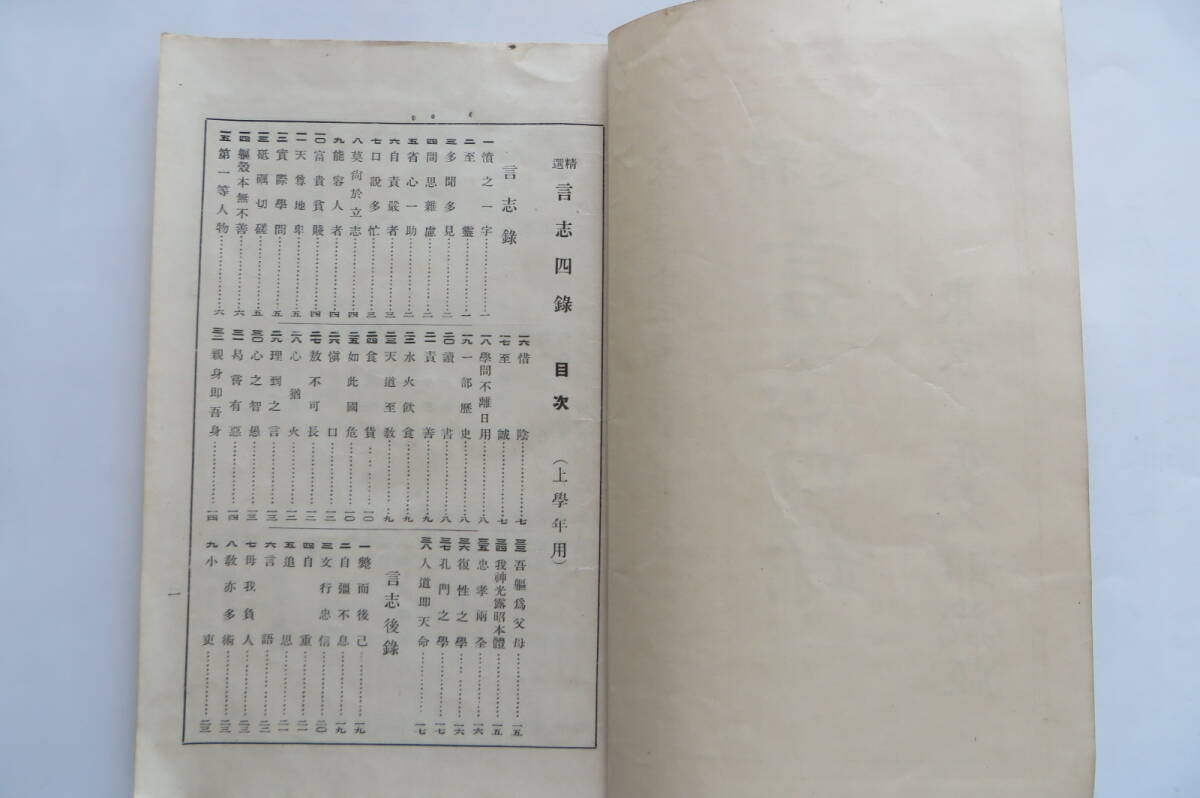 精選 言志四錄 目次 (上學年用)
言志錄
一 憤之一字……一
二 至靈……一
三 多聞多見……二
四 間思雜慮……二
五 省心一助……二
六 自責嚴者……三
七 口說多忙……三
八 莫尙於立志……四
九 能容人者……四
一〇 富貴貧賤……四
一一 天尊地卑……五
一二 實際學問……五
一三 砥礪切磋……五
一四 軀殼本無不善……六
一五 第一等人物……六
一六 惜陰……七
一七 至誠……七
一八 學問不離日用……八
一九 一部歷史……八
二〇 讀書……八
二一 責善……九
二二 水火飮食……九
二三 天道至敎……九
二四 食貨……一〇
二五 如此國危……一〇
二六 愼口……一一
二七 敖不可長……一二
二八 心猶火……一二
二九 理到之言……一三
三〇 心之智愚……一三
三一 曷嘗有惡……一四
三二 親身卽吾身……一四
三三 吾軀爲父母……一五
三四 我神光露昭本體……一五
三五 忠孝兩全……一六
三六 復性之學……一六
三七 孔門之學……一七
三八 人道卽天命……一七
言志後錄
一 斃而後已……一九
二 自彊不息……一九
三 文行忠信……二〇
四 自重……二一
五 追思……二一
六 言語……二二
七 毋我負人……二二
八 敎亦多術……二三
九 小吏……二三
一